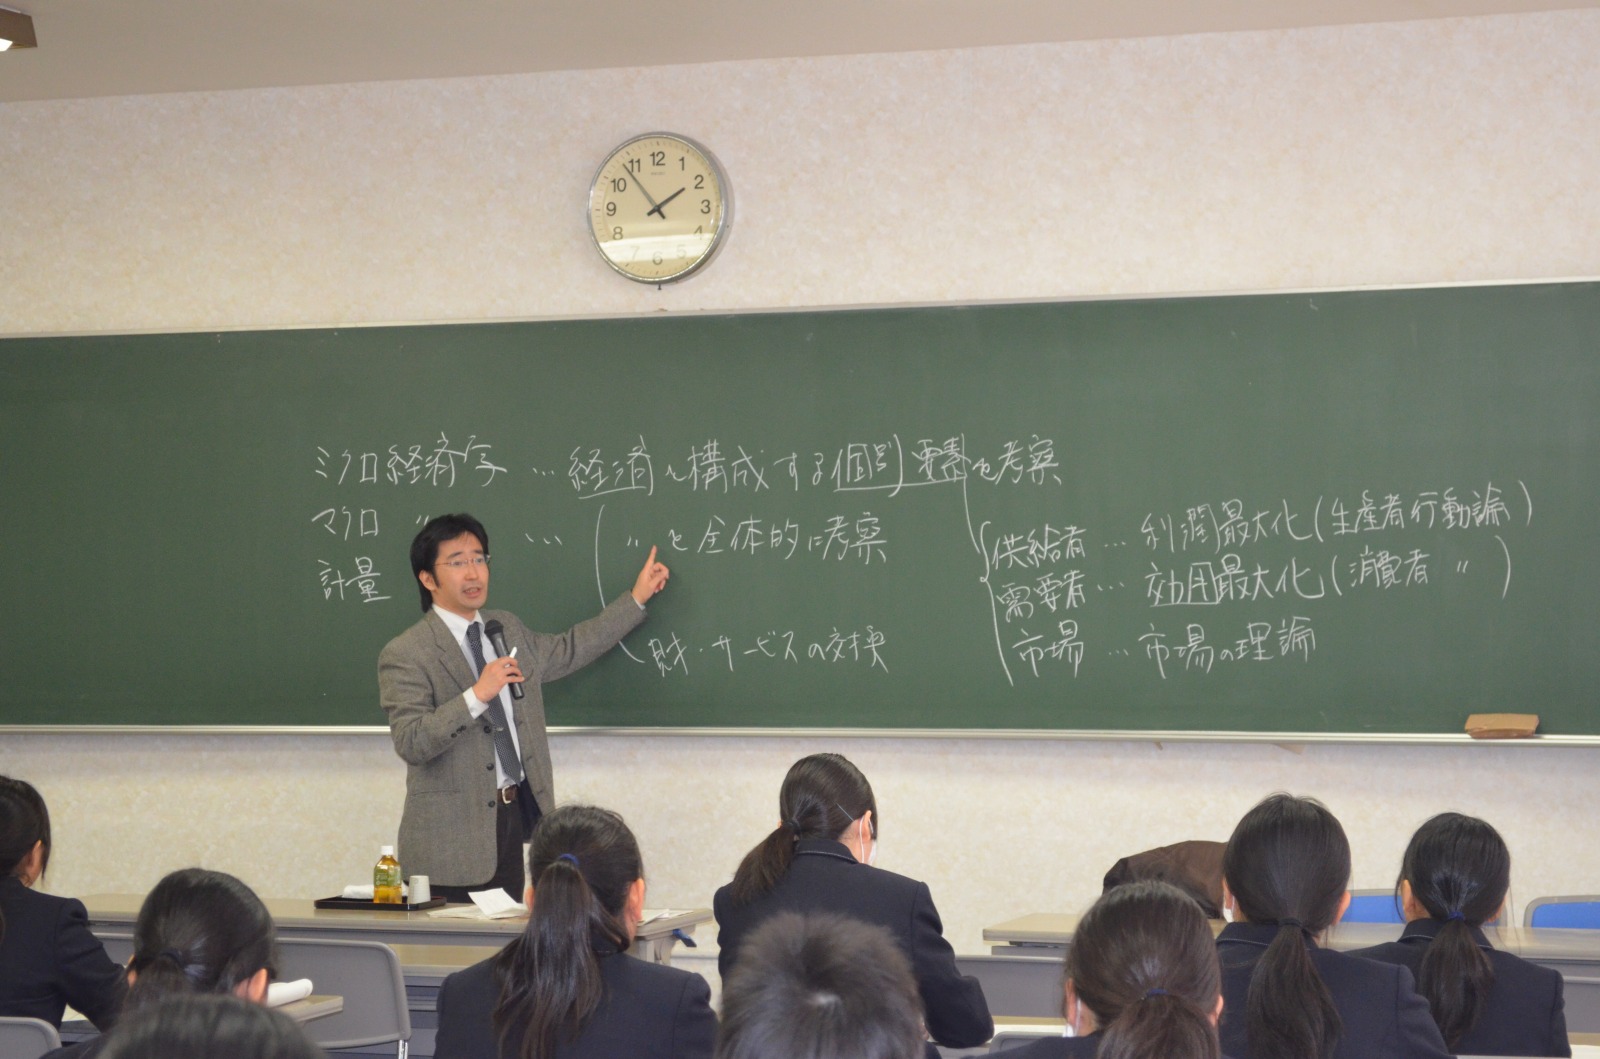 12
1
2
3
4
5
6
7
8
9
10
11
ミクロ経済学 … 経済を構成する個別要素を考察
マクロ 〃 … ( 〃 を全体的に考察
計量
財・サービスの交換
供給者 … 利潤最大化(生産者行動論)
需要者 … 効用最大化(消費者 〃 )
市場 … 市場の理論